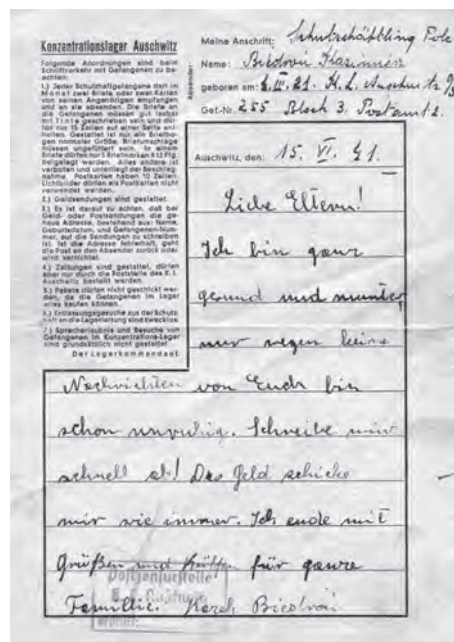 Konzentrationslager Auschwitz
Folgende Anordnungen sind beim
Schriftverkehr mit Gefangenen zu be-
achten:
1.) Jeder Schutzhaftgefangene darf im
Monat zwei Briefe oder zwei Karten
von seinen Angehörigen empfangen
und an sie absenden. Die Briefe an
die Gefangenen müssen gut lesbar
mit Tinte geschrieben sein und dür-
fen nur 15 Zeilen auf einer Seite ent-
halten. Gestattet ist nur ein Briefbo-
gen normaler Größe. Briefumschläge
müssen ungefüttert sein. In einem
Briefe dürfen nur 5 Briefmarken à 12 Pfg.
beigelegt werden. Alles andere ist
verboten und unterliegt der Beschlag-
nahme. Postkarten haben 10 Zeilen.
Lichtbilder dürfen als Postkarten nicht
verwendet werden.
2.) Geldsendungen sind gestattet.
3.) Es ist darauf zu achten, daß bei
Geld- oder Postsendungen die ge-
naue Adresse, bestehend aus: Name,
Geburtsdatum, und Gefangenen-Num-
mer, auf die Sendungen zu schreiben
ist. Ist die Adresse fehlerhaft, geht
die Post an den Absender zurück oder
wird vernichtet.
4.) Zeitungen sind gestattet, dürfen
aber nur durch die Poststelle des K. L.
Auschwitz bestellt werden.
5.) Pakete dürfen nicht geschickt wer-
den, da die Gefangenen im Lager
alles kaufen können.
6.) Entlassungsgesuche aus der Schutz-
haft an die Lagerleitung sind zwecklos.
7.) Sprecherlaubnis und Besuche von
Gefangenen im Konzentrations-Lager
sind grundsätzlich nicht gestattet.
Der Lagerkommandant
Absender:
Meine Anschrift: Schutzhäftling Pole
Name:
geboren am: K. L. Auschwitz
Gef.-Nr. 255 Block 3. Postamt 2.
Auschwitz, den: 15. VI. 41.
Liebe Eltern!
Ich bin ganz
gesund und munter
nur wegen keine
Nachrichten von Euch bin
schon unruhig. Schreibe mir
schnell ab! Das Geld schicke
mir wie immer. Ich ende mit
Grüßen und Küssen für ganze
Familie.